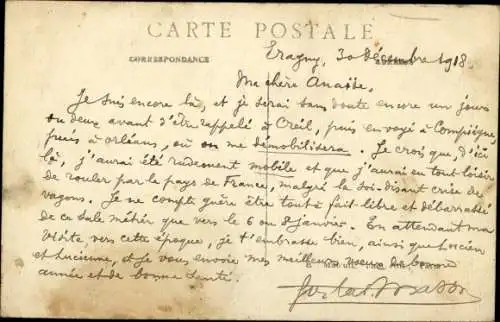 CARTE POSTALE
CORRESPONDANCE
Eragny, 30 Décembre 1918.
Ma chère Anaïse,
Je suis encore là, et je serai sans doute encore un jour
ou deux avant d'être rappelé à Creil, puis envoyé à Compiègne,
puis à Orléans, où on me démobilisera. Je crois que, d'ici
là, j'aurai été rudement mobile et que j'aurai eu tout loisir
de rouler par le pays de France, malgré la soi-disant crise de
wagons. Je ne compte guère être tout à fait libre et débarrassé
de ce sale métier que vers le 6 ou 8 janvier. En attendant ma
visite vers cette époque, je t'embrasse bien, ainsi que
et Lucienne, et je vous envoie mes meilleurs voeux de bonne
année et de bonne santé.